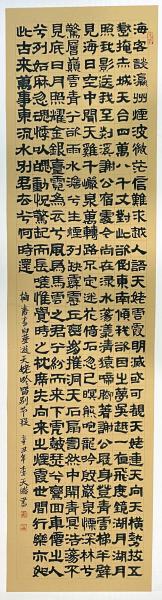 海客談瀛洲煙波微茫信難求越人語天姥雲霞明滅或可覩天姥連天向天橫勢拔五
嶽掩赤城天台四萬八千丈對此欲倒東南傾我欲因之夢吳越一夜飛度鏡湖月湖月
照我影送我至剡溪謝公宿處今尚在淥水蕩漾清猿啼腳著謝公屐身登青雲梯半壁
見海日空中聞天雞千巖萬轉路不定迷花倚石忽已暝熊咆龍吟殷巖泉慄深林兮
驚層巔雲青青兮欲雨水澹澹兮生煙列缺霹靂丘巒崩摧洞天石扇訇然中開青冥浩蕩不
見底日月照耀金銀臺霓為衣兮風為馬雲之君兮紛紛而來下虎鼓瑟兮鸞回車仙之人
兮列如麻忽魂悸以魄動怳驚起而長嗟惟覺時之枕席失向來之煙霞世間行樂亦如
此古來萬事東流水別君去兮何時還
李白夢遊天姥吟留別 辛丑年李天書